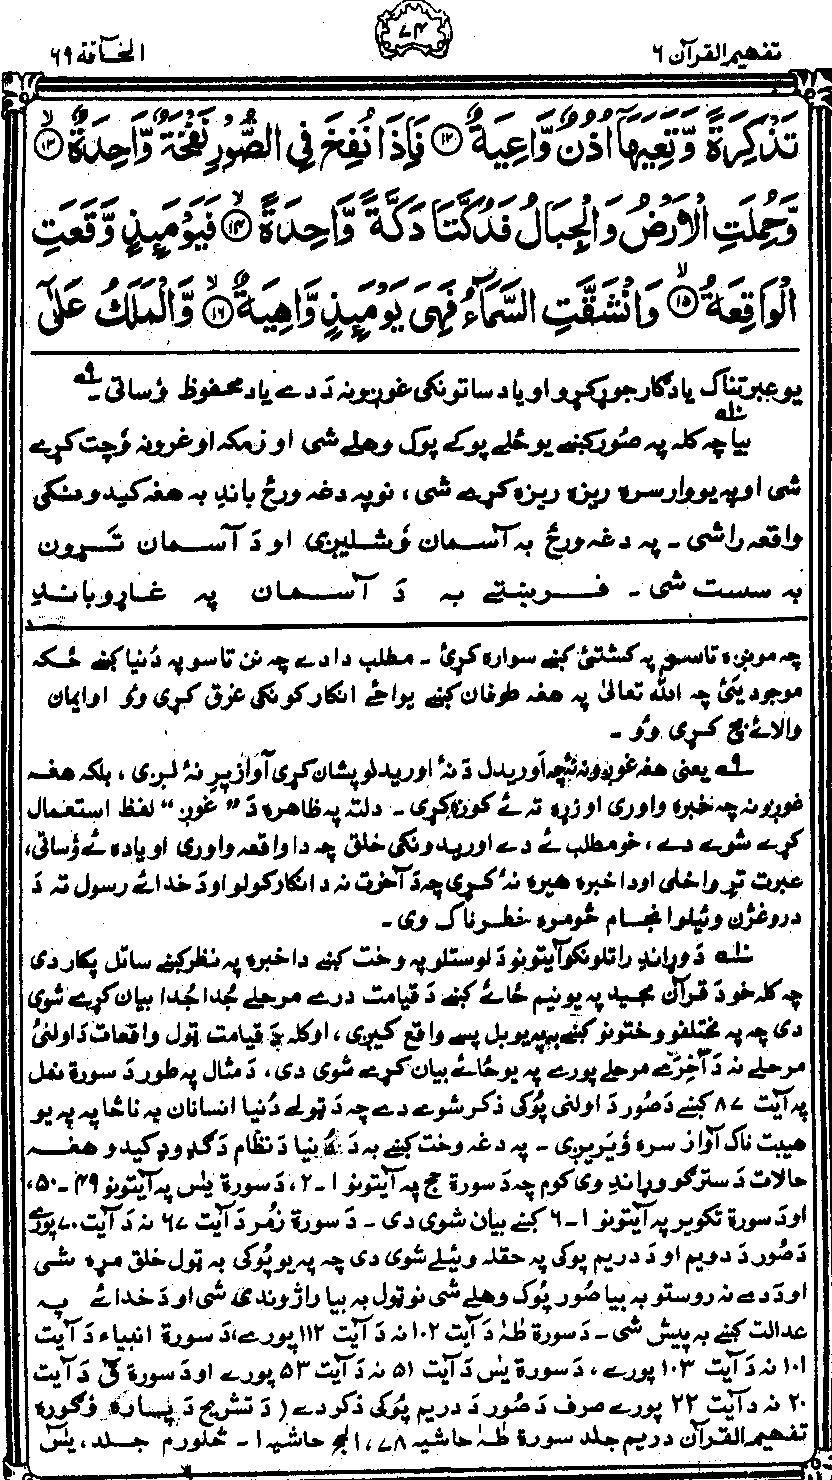 تفهیم القرآن ۶
۷۴
الحاقة ۶۹
تَذْكِرَةً وَّتَعِيَهَآ اُذُنٌ وَّاعِيَةٌ ⑫ فَاِذَا نُفِخَ فِى الصُّوْرِ نَفْخَةٌ وَّاحِدَةٌ ⑬
وَّحُمِلَتِ الْاَرْضُ وَالْجِبَالُ فَدُكَّتَا دَكَّةً وَّاحِدَةً ⑭ فَيَوْمَىِٕذٍ وَّقَعَتِ
الْوَاقِعَةُ ⑮ وَانْشَقَّتِ السَّمَآءُ فَهِىَ يَوْمَىِٕذٍ وَّاهِيَةٌ ⑯ وَّالْمَلَكُ عَلٰٓى
یو عبرتناک یادگار جوړ کړو او یاد ساتونکی غوږونه د دے یاد محفوظ وُساتی۔ ۹
بیا چه کله په صُور کښے یو ځلے پوکے پوک وهلے شی او زمکه او غرونه وُچت کړے
شی او په یو وار سره ریزه ریزه کړے شی، نو په دغه ورځ باندِ به هغه کیدونکی
واقعه راشی۔ په دغه ورځ به آسمان وُشلیږی او دَ آسمان تړون
به سست شی۔ فرښتے به دَ آسمان په غاړو باندِ
چه مونږه تاسو په کشتئ کښے سواره کړئ۔ مطلب دا دے چه نن تاسو په دُنیا کښے ځکه
موجود یئ چه الله تعالیٰ په هغه طوفان کښے یواځے انکار کونکی غرق کړی وُو او ایمان
والا ئے بچ کړی وُو۔
۹ یعنی هغه غوږونه نه چه اَوریدل دَ نۀ اوریدلو پشان کړی آواز پرِ نۀ لږی، بلکه هغه
غوږونه چه خبره واوری او زړه ته ئے کوزه کړی۔ دلته په ظاهره دَ "غوږ" لفظ استعمال
کړے شوے دے، خو مطلب ئے دے اوریدونکی خلق چه دا واقعه واوری او یاده ئے وُساتی،
عبرت ترِ واخلی او دا خبره هیره نۀ کړی چه دَ آخرت نه دَ انکار کولو او دَ خدائے رسول ته دَ
دروغژن وئیلو انجام څومره خطرناک وی۔
۱۰ دَ وړاندِ راتلونکو آیتونو دَ لوستلو په وخت کښے دا خبره په نظر کښے ساتل پکار دی
چه کله خو دَ قرآن مجید په یو نیم ځائے کښے دَ قیامت درے مرحلے جُدا جُدا بیان کړے شوی
دی چه په مختلفو وختونو کښے به په یو بل پسے واقع کیږی، او کله دَ قیامت ټول واقعات دَ اولنئ
مرحلے نه دَ آخرے مرحلے پورے په یو ځائے بیان کړے شوی دی، دَ مثال په طور دَ سورة نمل
په آیت ۸۷ کښے دَ صُور دَ اولنی پُوکی ذکر شوے دے چه دَ ټولے دُنیا انسانان په ناڅاپه په یو
هیبت ناک آواز سره وُیریږی۔ په دغه وخت کښے به دَ دُنیا دَ نظام دَ ګډ وډ کیدو هغه
حالات دَ سترګو وړاندِ وی کوم چه دَ سورة حج په آیتونو ۱۔۲، دَ سورة یٰسٓ په آیتونو ۴۹۔۵۰،
او دَ سورة تکویر په آیتونو ۱۔۶ کښے بیان شوی دی۔ دَ سورة زُمر دَ آیت ۶۷ نه دَ آیت ۷۰ پورے
دَ صُور دَ دویم او دَ دریم پوکی په حقله وئیلے شوی دی چه په یو پُوکی به ټول خلق مړه شی
او دَ دے نه روستو به بیا صُور پُوک وهلے شی نو ټول به بیا راژوندی شی او دَ خدائے په
عدالت کښے به پیش شی۔ دَ سورة طٰهٰ دَ آیت ۱۰۲ نه دَ آیت ۱۱۲ پورے، دَ سورة انبیاء دَ آیت
۱۰۱ نه دَ آیت ۱۰۳ پورے، دَ سورة یٰسٓ دَ آیت ۵۱ نه دَ آیت ۵۳ پورے او دَ سورة قٓ دَ آیت
۲۰ نه دَ آیت ۲۲ پورے صرف دَ صُور دَ دریم پُوکی ذکر دے (دَ تشریح دَ پساره وُګوره
تفهیم القرآن دریم جلد سورة طٰهٰ حاشیه ۷۸، الحج حاشیه ۱۔ څلورم جلد، یٰسٓ